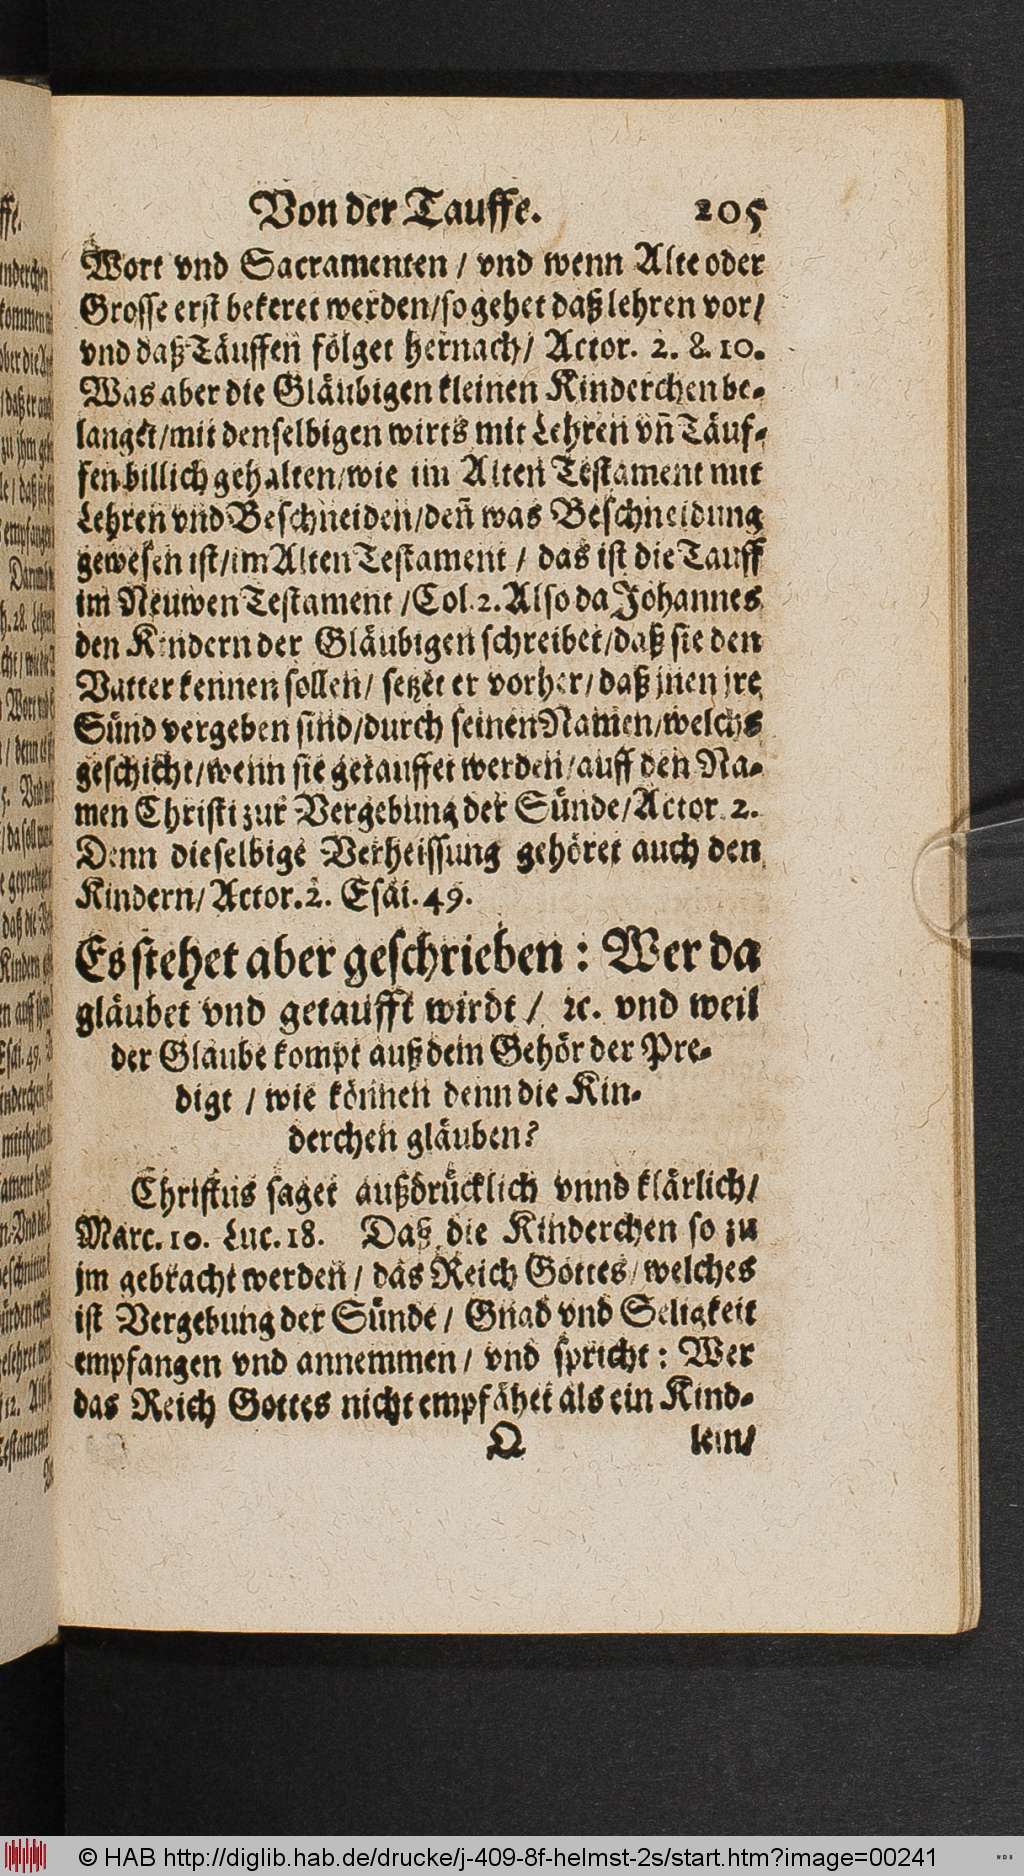 Von der Tauffe. 205
Wort vnd Sacramenten / vnd wenn Alte oder
Grosse erst bekeret werden/so gehet daß lehren vor/
vnd daß Täuffen folget hernach/ Actor. 2. 8. 10.
Was aber die Gläubigen kleinen Kinderchen be-
langet/mit denselbigen wirts mit Lehren vñ Täuf-
fen billich gehalten/wie im Alten Testament mit
Lehren vnd Beschneiden/deñ was Beschneidung
gewesen ist/im Alten Testament / das ist die Tauff
im Neuwen Testament /Col. 2. Also da Johannes
den Kindern der Gläubigen schreibet/daß sie den
Vatter kennen sollen/ setzet er vorher/ daß jnen jre
Sünd vergeben sind/durch seinen Namen/welchs
geschicht/wenn sie getauffet werden/auff den Na-
men Christi zur Vergebung der Sünde/Actor. 2.
Denn dieselbige Verheissung gehöret auch den
Kindern/ Actor. 2. Esai. 49.
Es stehet aber geschrieben : Wer da
gläubet vnd getaufft wirdt / ꝛc. vnd weil
der Glaube kompt auß dem Gehör der Pre-
digt / wie können denn die Kin-
derchen gläuben?
Christus saget außdrücklich vnnd klärlich/
Marc. 10. Luc. 18. Daß die Kinderchen so zu
jm gebracht werden / das Reich Gottes/welches
ist Vergebung der Sünde / Gnad vnd Seligkeit
empfangen vnd annemmen / vnd spricht : Wer
das Reich Gottes nicht empfähet als ein Kind-
Q lein/
© HAB http://diglib.hab.de/drucke/j-409-8f-helmst-2s/start.htm?image=00241